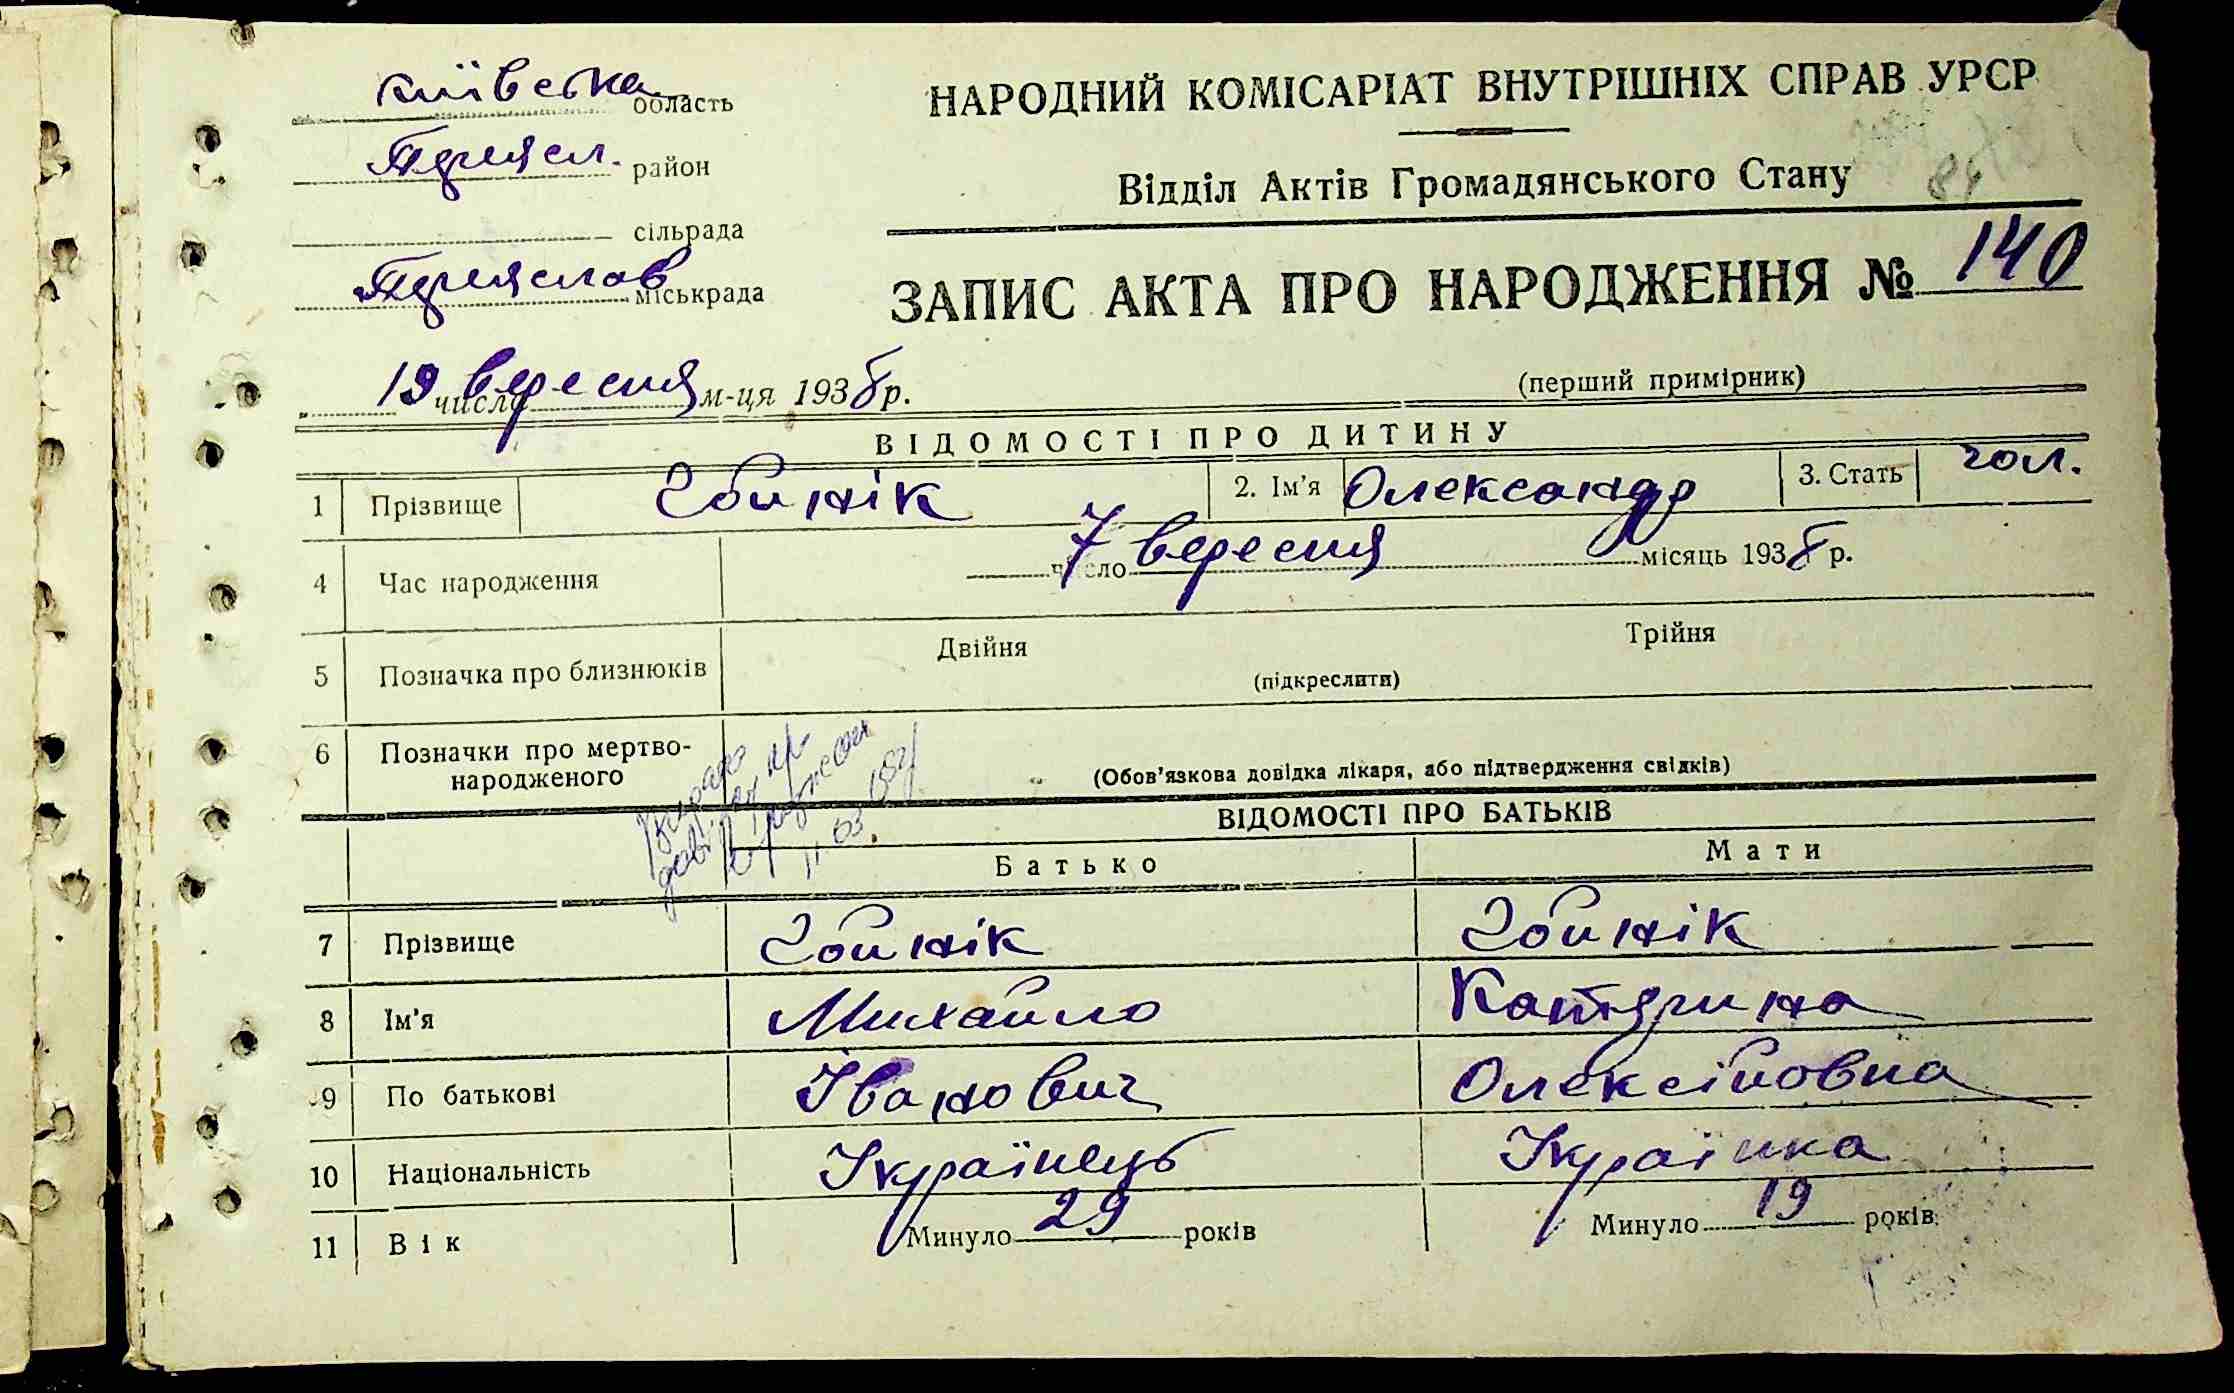 Київська область
Переясл. район
сільрада
Переяслав міськрада
НАРОДНИЙ КОМІСАРІАТ ВНУТРІШНІХ СПРАВ УРСР
Відділ Актів Громадянського Стану
84
ЗАПИС АКТА ПРО НАРОДЖЕННЯ № 140
19 число вересня м-ця 1938 р.
(перший примірник)
ВІДОМОСТІ ПРО ДИТИНУ
1 Прізвище 2. Ім'я Олександр 3. Стать чол.
4 Час народження 7 число вересня місяць 1938 р.
5 Позначка про близнюків Двійня Трійня
(підкреслити)
6 Позначки про мертво-
народженого
(Обов'язкова довідка лікаря, або підтвердження свідків)
ВІДОМОСТІ ПРО БАТЬКІВ
Батько Мати
7 Прізвище
8 Ім'я Михайло Катерина
9 По батькові Іванович Олексіївна
10 Національність Українець Українка
11 Вік Минуло 29 років Минуло 19 років